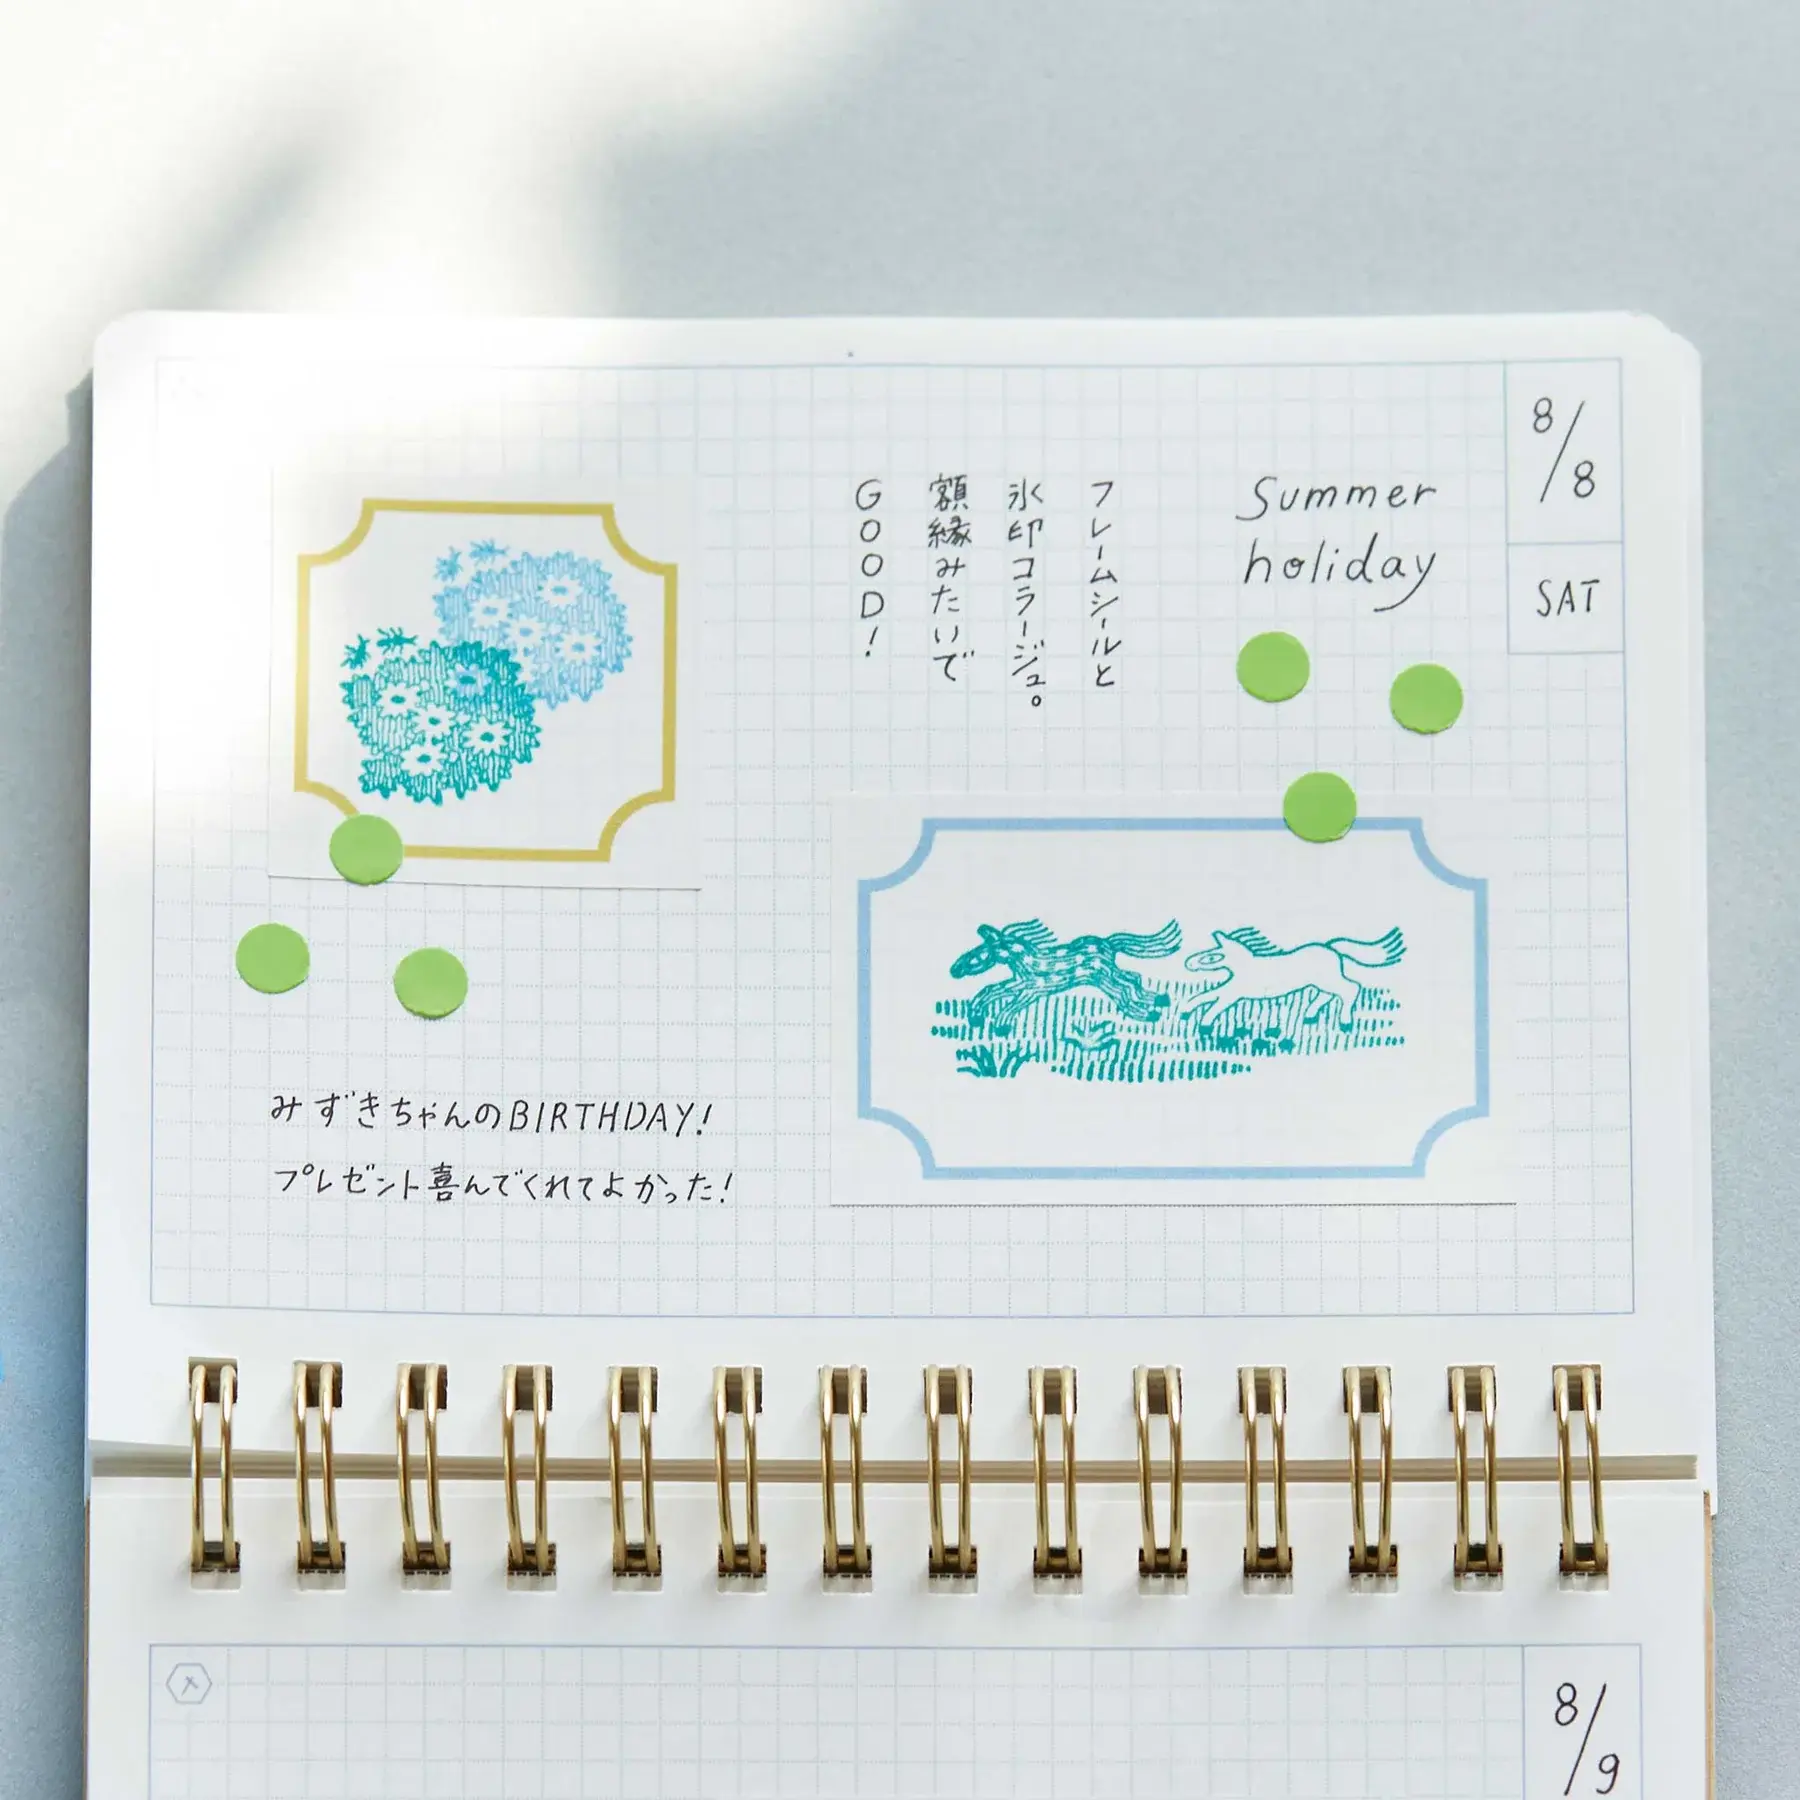 8/8
SAT
Summer
holiday
フレームシールと
氷印コラージュ。
額縁みたいで
GOOD!
みずきちゃんのBIRTHDAY!
プレゼント喜んでくれてよかった!
8/9